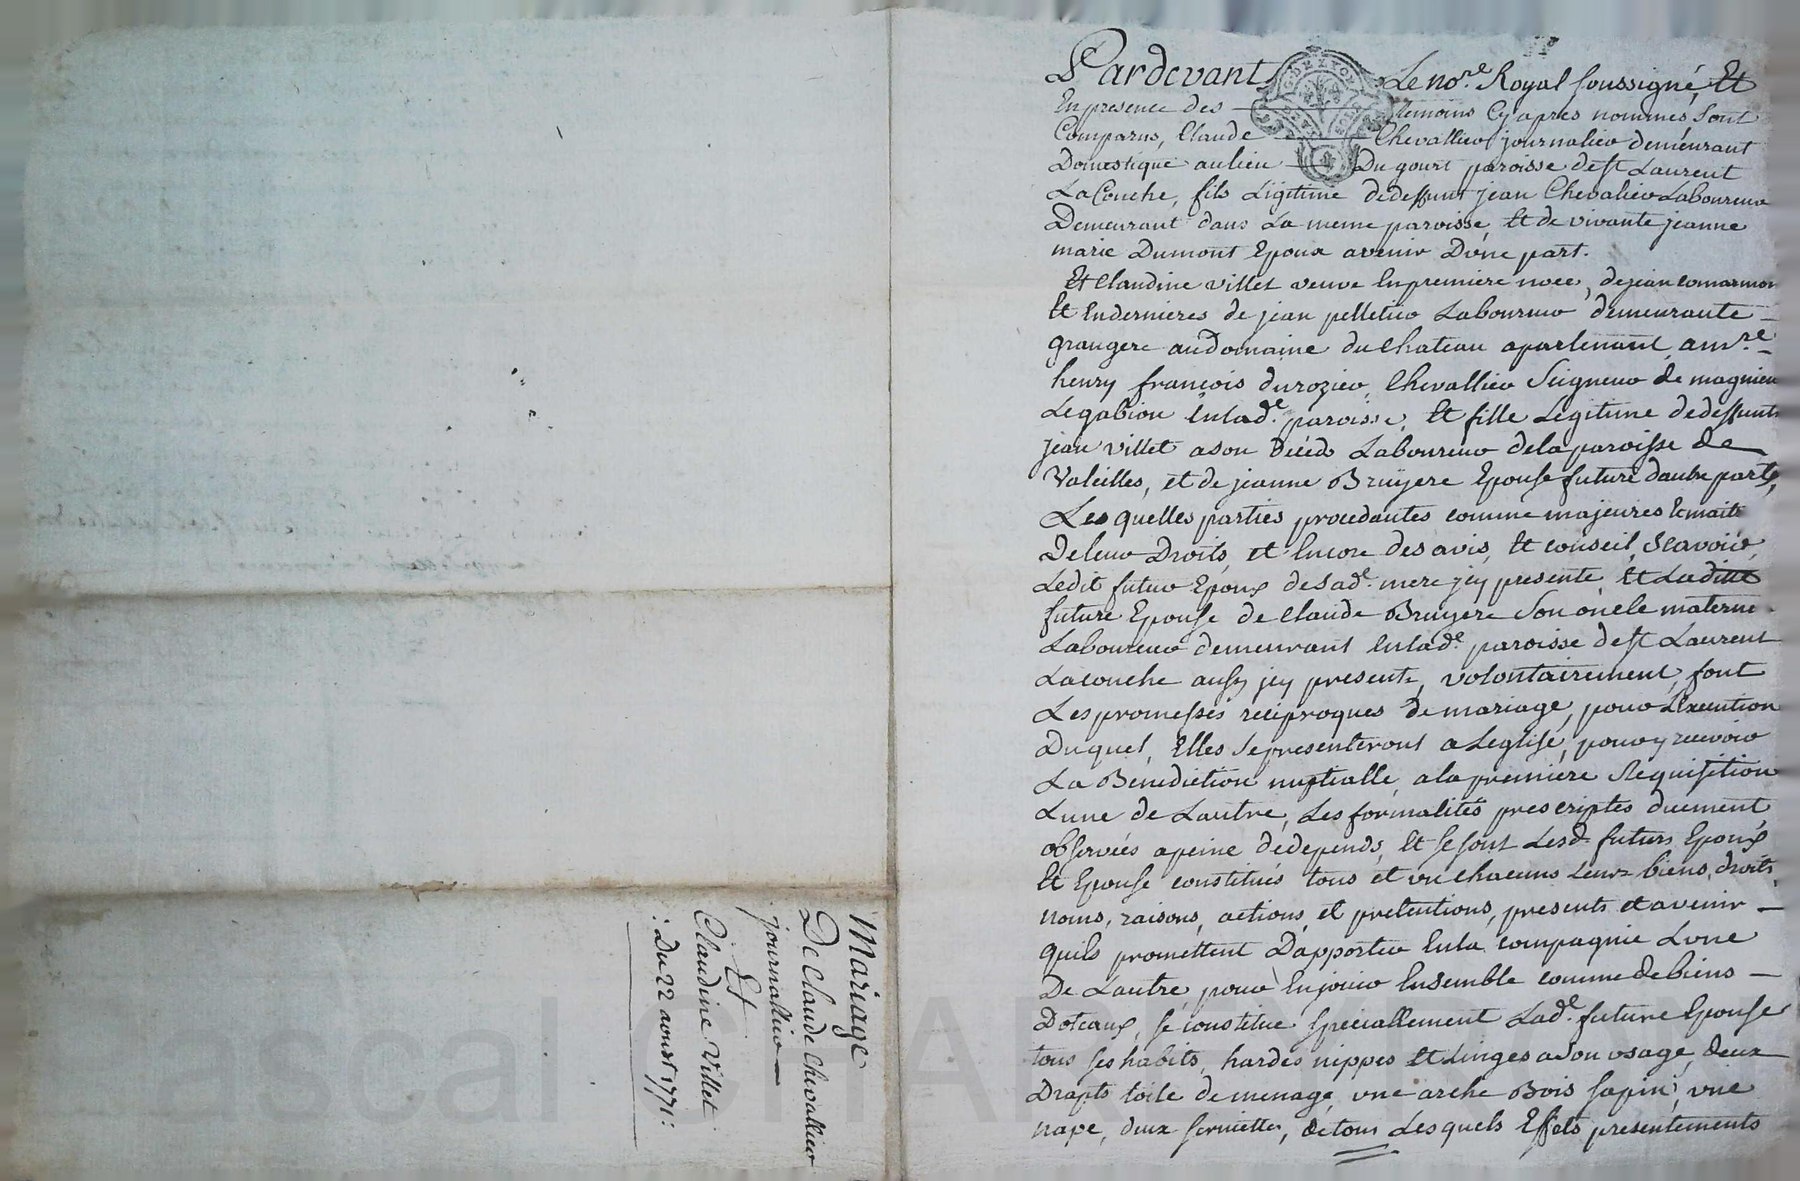 Mariage
De Claude Chevallier
journallier
Et
Claudine Villet
: Du 22 aoust 1771 :
Pardevant Le no.re Royal soussigné, Et
En presence des temoins Cy apres nommés Sont
Comparus, Claude Chevallier journalier demeurant
Domestique au lieu Du gourt paroisse de st Laurent
La Conche, fils Legitime de deffunt jean Chevalier Laboureur
Demeurant dans La meme paroisse, Et de vivante jeanne
marie Dumont Epoux avenir D'une part.
Et Claudine villet veuve En premiere noce, de jean comarmon
Et En dernieres de jean pelletier Laboureur demeurante
grangere au Domaine du Chateau apartenant a mre
henry françois du rozier, Chevallier Seigneur de magnieu
Le gabion En lad.e paroisse, Et fille Legitime de deffunts
jean villet a son Décéd Laboureur de la paroisse de
Valeilles, et de jeanne Bruyere Epouse future dautre part,
Les quelles parties procedantes comme majeures Et maitr
De leur Droits, et Encore des avis, Et conseil, Scavoir,
Ledit futur Epoux de Sad.e mere jcy presente, Et Laditte
future Epouse de Claude Bruyere Son oncle materne
Laboureur demeurant En lad.e paroisse de st Laurent
La conche aussy jcy present, volontairement, font
Les promesses reciproques de mariage, pour L'Execution
Duquel, Elles Se presenteront a Leglise, pour y recevoir
La Benediction nuptialle, a la premiere Requisition
Lune de Lautre, Les formalités prescriptes duement
observées a peine de depends, Et se sont Lesd. futurs Epoux
Et Epouse constitués tous et un chacuns Leurs biens, droits,
noms, raisons, actions, et pretentions, presents et avenir
quils promettent D'apporter En la compagnie Lune
De Lautre, pour En jouir Ensemble comme de biens
Dotaux, se constitue speciallement Lad.e future Epouse
tous ses habits, hardes nippes et Linges a son usage, deux
Drapts toile de menage, une arche Bois sapin, une
nape, deux serviettes, de tous Lesquels Effets presentements